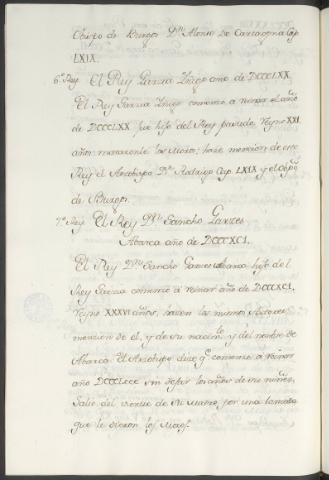 Obispo de Burgos Dⁿ Alonso de Cartagena Cap
LXIX.
6º Rey El Rey Garcia Iñigo año de DCCCLXX.
El Rey Garcia Iñigo comenzó a reinar el año
de DCCCLXX fue hijo del Rey pasado. Reyno XXI
años: mataronle los Moros: hace mencion de este
Rey el Arzobispo Dⁿ Rodrigo Cap. LXIX y el Obpo
de Burgos.
7º Rey El Rey Dⁿ Sancho Garces
Abarca año de DCCCXCI.
El Rey Dⁿ Sancho Garces Abarca hijo del
Rey Garcia comenzó a reinar año de DCCCXCI.
Reyno XXXVI años, hacen los mismos Autores
mencion de el, y de su nacimto. y del nombre de
Abarca. El Arzobispo dice qe comenzo a reinar
año DCCCCLXXX sin dejar los años de su niñez.
Salio del vientre de su madre, por una lanzada
que le dieron los Moros.